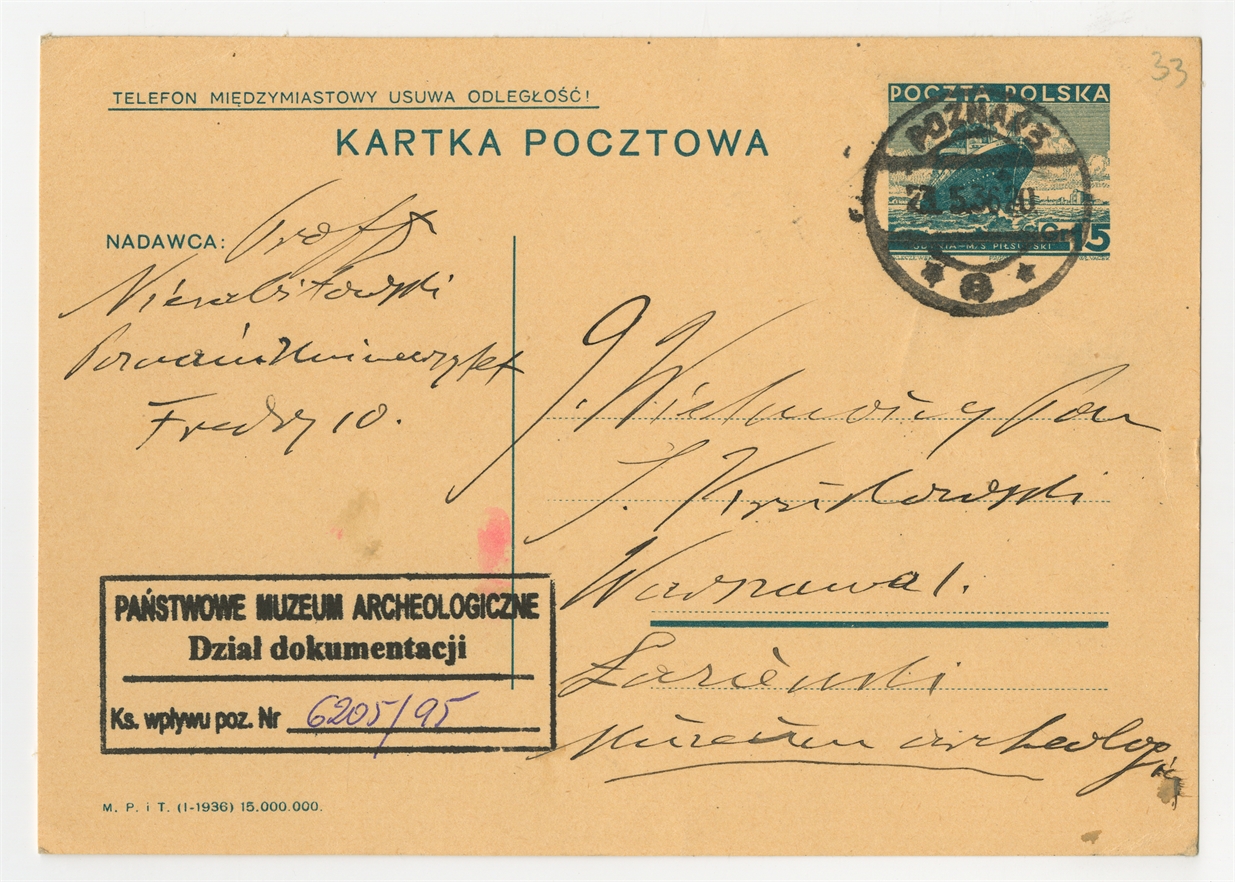 33
TELEFON MIĘDZYMIASTOWY USUWA ODLEGŁOŚĆ!
KARTKA POCZTOWA
POCZTA POLSKA
POZNAŃ 3
5.36
GDYNIA–M/S PIŁSUDSKI
GR 15
8
NADAWCA: Prof.
Niezabitowski
Poznań Uniwersytet
Fredry 10.
J. Wielmożny Pan
S. Krukowski
Warszawa 1.
Łazienki
Muzeum archeolog
PAŃSTWOWE MUZEUM ARCHEOLOGICZNE
Dział dokumentacji
Ks. wpływu poz. Nr 6205/95
M. P. i T. (I-1936) 15.000.000.